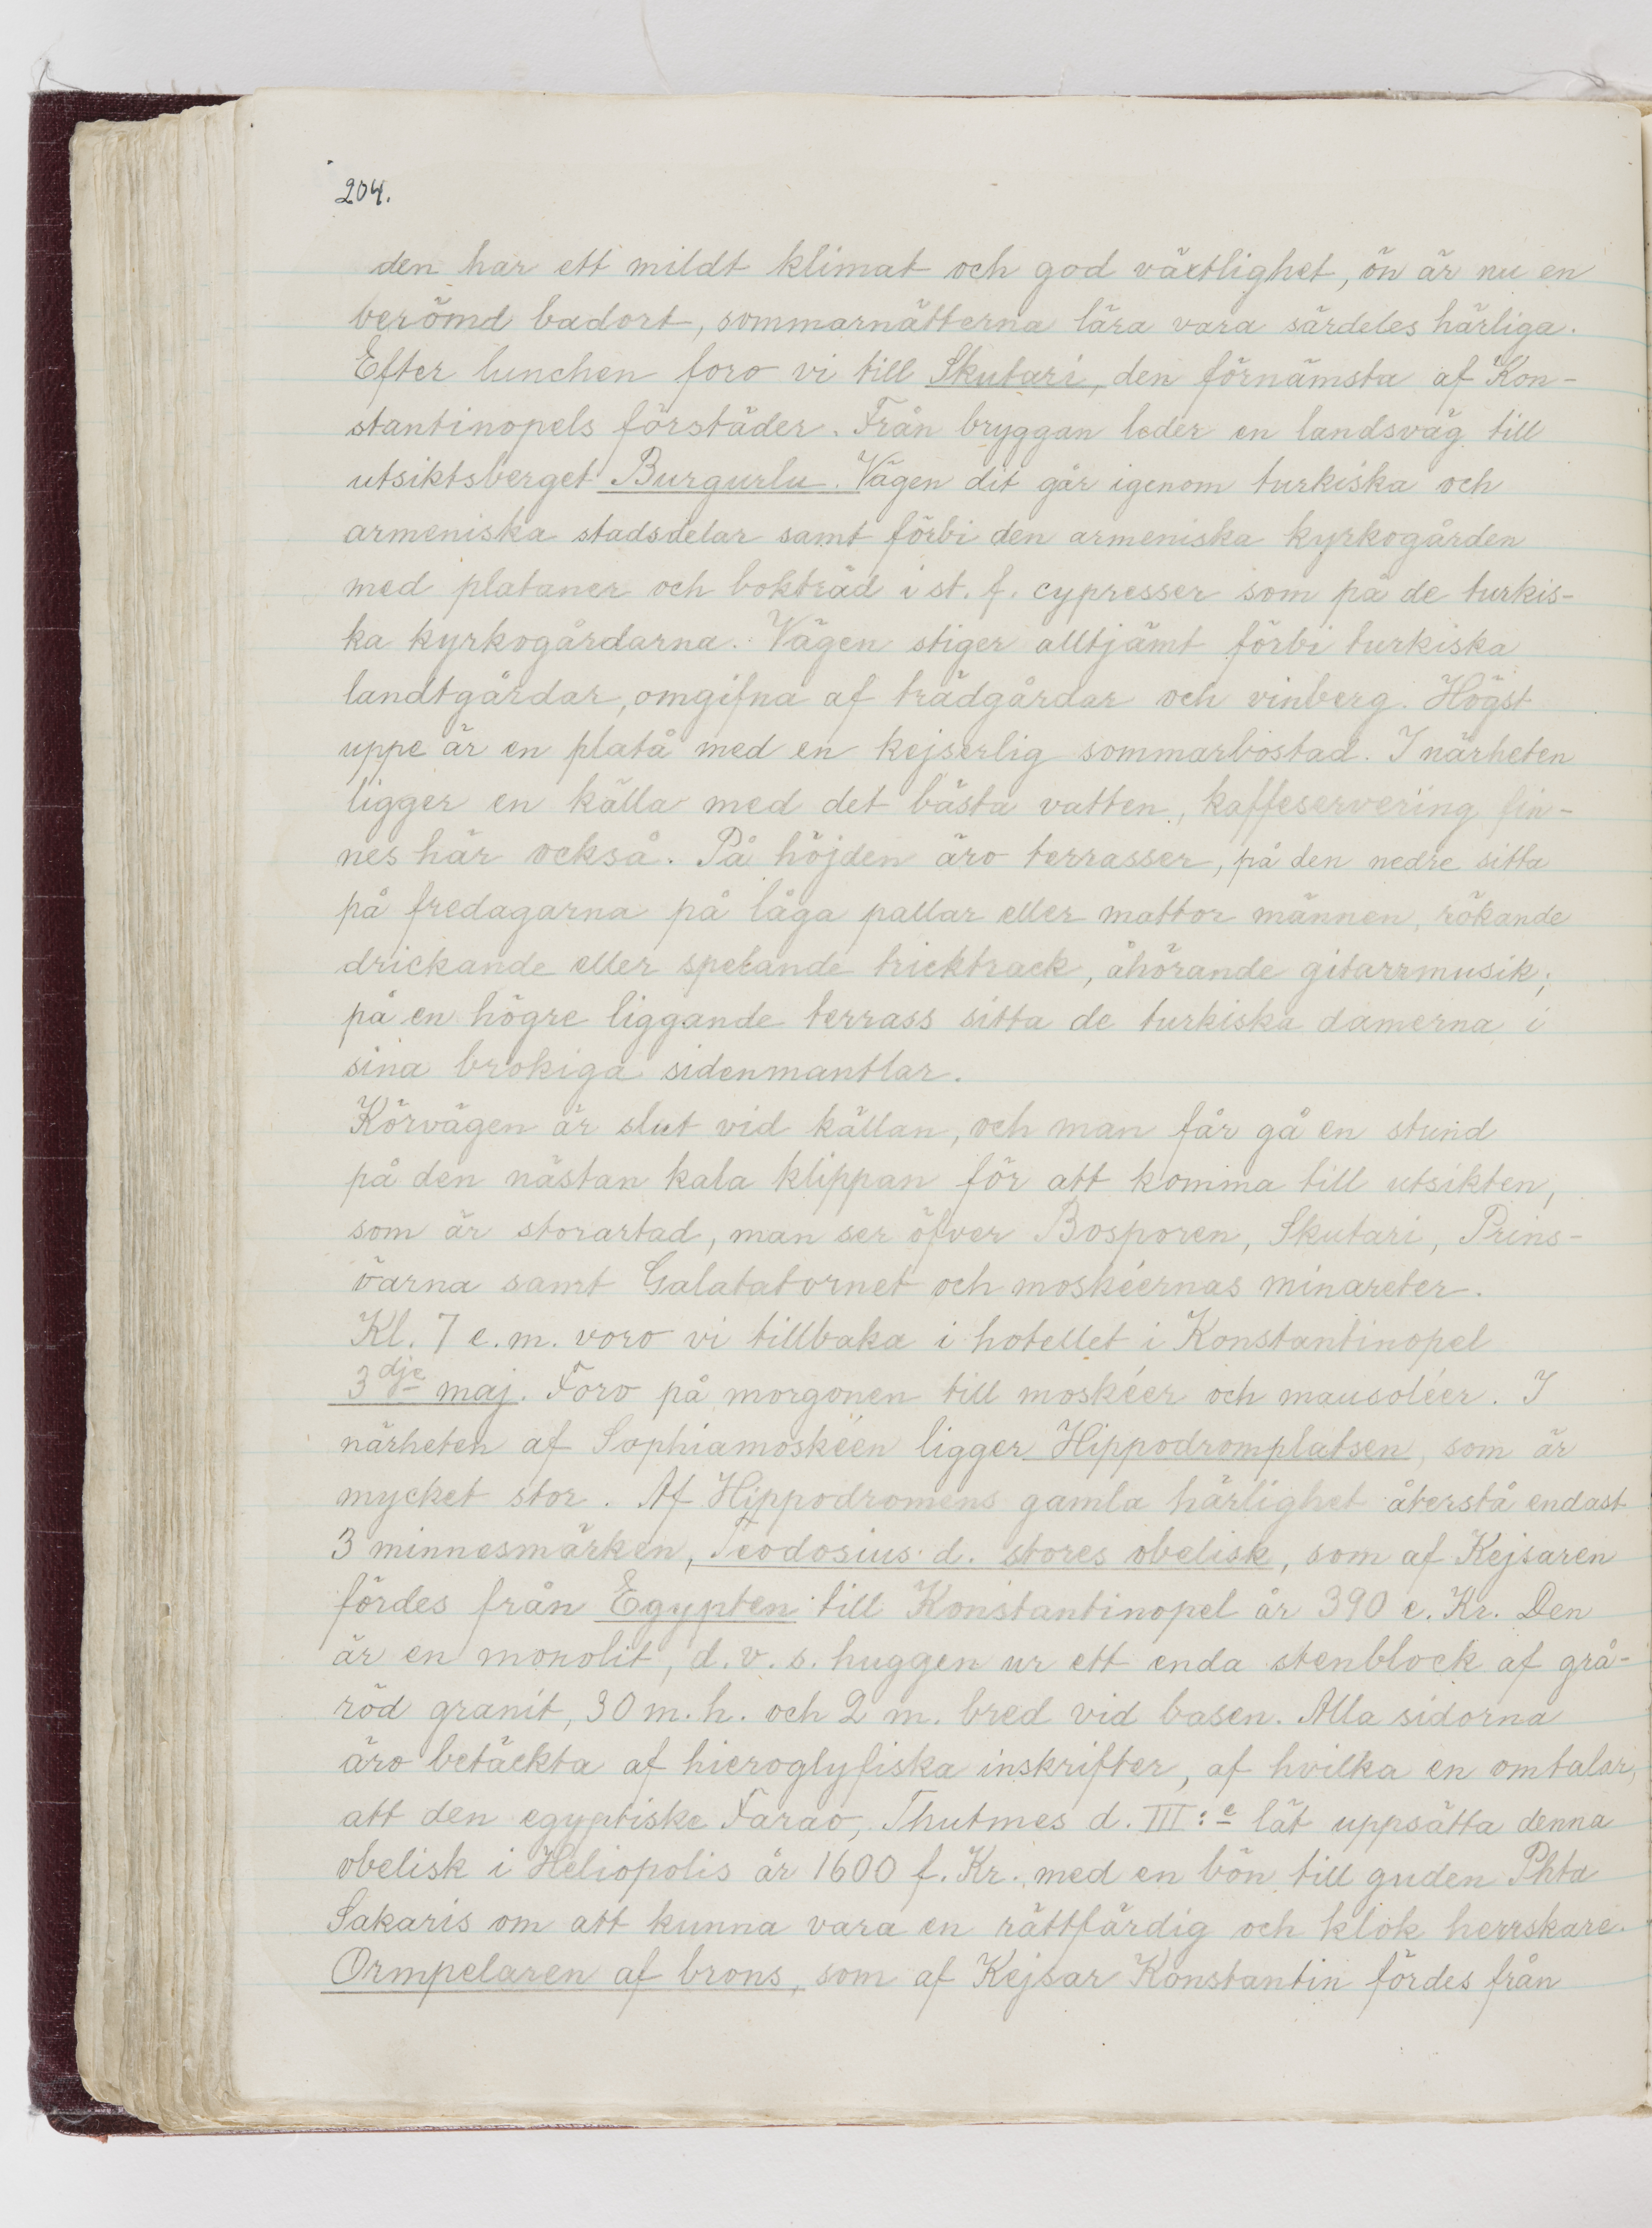 204.
den har ett mildt klimat och god växtlighet, ön är nu en
berömd badort, sommarnätterna lära vara särdeles härliga.
Efter lunchen foro vi till Skutari, den förnämsta af Kon-
stantinopels förstäder. Från bryggan leder en landsväg till
utsiktsberget Burgurlu. Vägen dit går igenom turkiska och
armeniska stadsdelar samt förbi den armeniska kyrkogården
med plataner och bokträd i st. f. cypresser som på de turkis-
ka kyrkogårdarna. Vägen stiger alltjämt förbi turkiska
landtgårdar, omgifna af trädgårdar och vinberg. Högst
uppe är en platå med en kejserlig sommarbostad. I närheten
ligger en källa med det bästa vatten, kaffeservering fin-
nes här också. På höjden äro terrasser, på den nedre sitta
på fredagarna på låga pallar eller mattor männen, rökande
drickande eller spelande tricktrack, åhörande gitarrmusik;
på en högre liggande terrass sitta de turkiska damerna i
sina brokiga sidenmantlar.
Körvägen är slut vid källan, och man får gå en stund
på den nästan kala klippan för att komma till utsikten,
som är storartad, man ser öfver Bosporen, Skutari, Prins-
öarna samt Galatatornet och moskéernas minareter.
Kl. 7 e.m. voro vi tillbaka i hotellet i Konstantinopel
3dje maj. Foro på morgonen till moskéer och mausoléer. I
närheten af Sophiamoskéen ligger Hippodromplatsen, som är
mycket stor. Af Hippodromens gamla härlighet återstå endast
3 minnesmärken, Teodosius d. stores obelisk, som af Kejsaren
fördes från Egypten till Konstantinopel år 390 e. Kr. Den
är en monolit, d.v.s. huggen ur ett enda stenblock af grå-
röd granit, 30 m. h. och 2 m. bred vid basen. Alla sidorna
äro betäckta af hieroglyfiska inskrifter, af hvilka en omtalar,
att den egyptiske Farao, Thutmes d. III:e lät uppsätta denna
obelisk i Heliopolis år 1600 f. Kr. med en bön till guden Phta
Sakaris om att kunna vara en rättfärdig och klok herrskare.
Ormpelaren af brons, som af Kejsar Konstantin fördes från